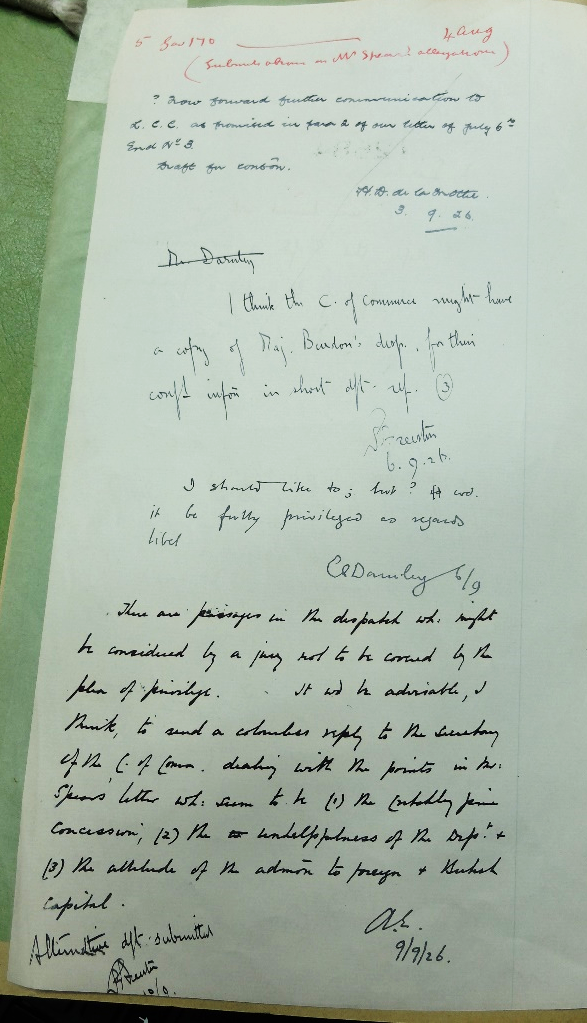 5 Gov 170 4 Aug
(Submits observns on Mr Spears' allegations)
? Now forward further communication to
L.C.C. as promised in para 2 of our letter of July 6th
End No 3.
Draft for conson.
H.D. de la Mothe.
3. 9. 26.
Mr. Darnley
I think the C. of Commerce might have
a copy of Maj. Burdon's desp. for their
confl infon in short dft. ref. (3)
6.9.26.
I should like to; but ? it wd.
it be fully privileged as regards
libel
ERDarnley 6/9
There are passages in the dispatch wh. might
be considered by a jury not to be covered by the
plea of privilege. It wd be advisable, I
think, to send a colourless reply to the Secretary
of the C. of Comm. dealing with the points in Mr.
Spears' letter wh: seem to be (1) the
concession; (2) the unhelpfulness of the Depts. +
(3) the attitude of the admon to foreign + British
capital.
A.E.
9/9/26.
Alternative dft. submitted
10/9.